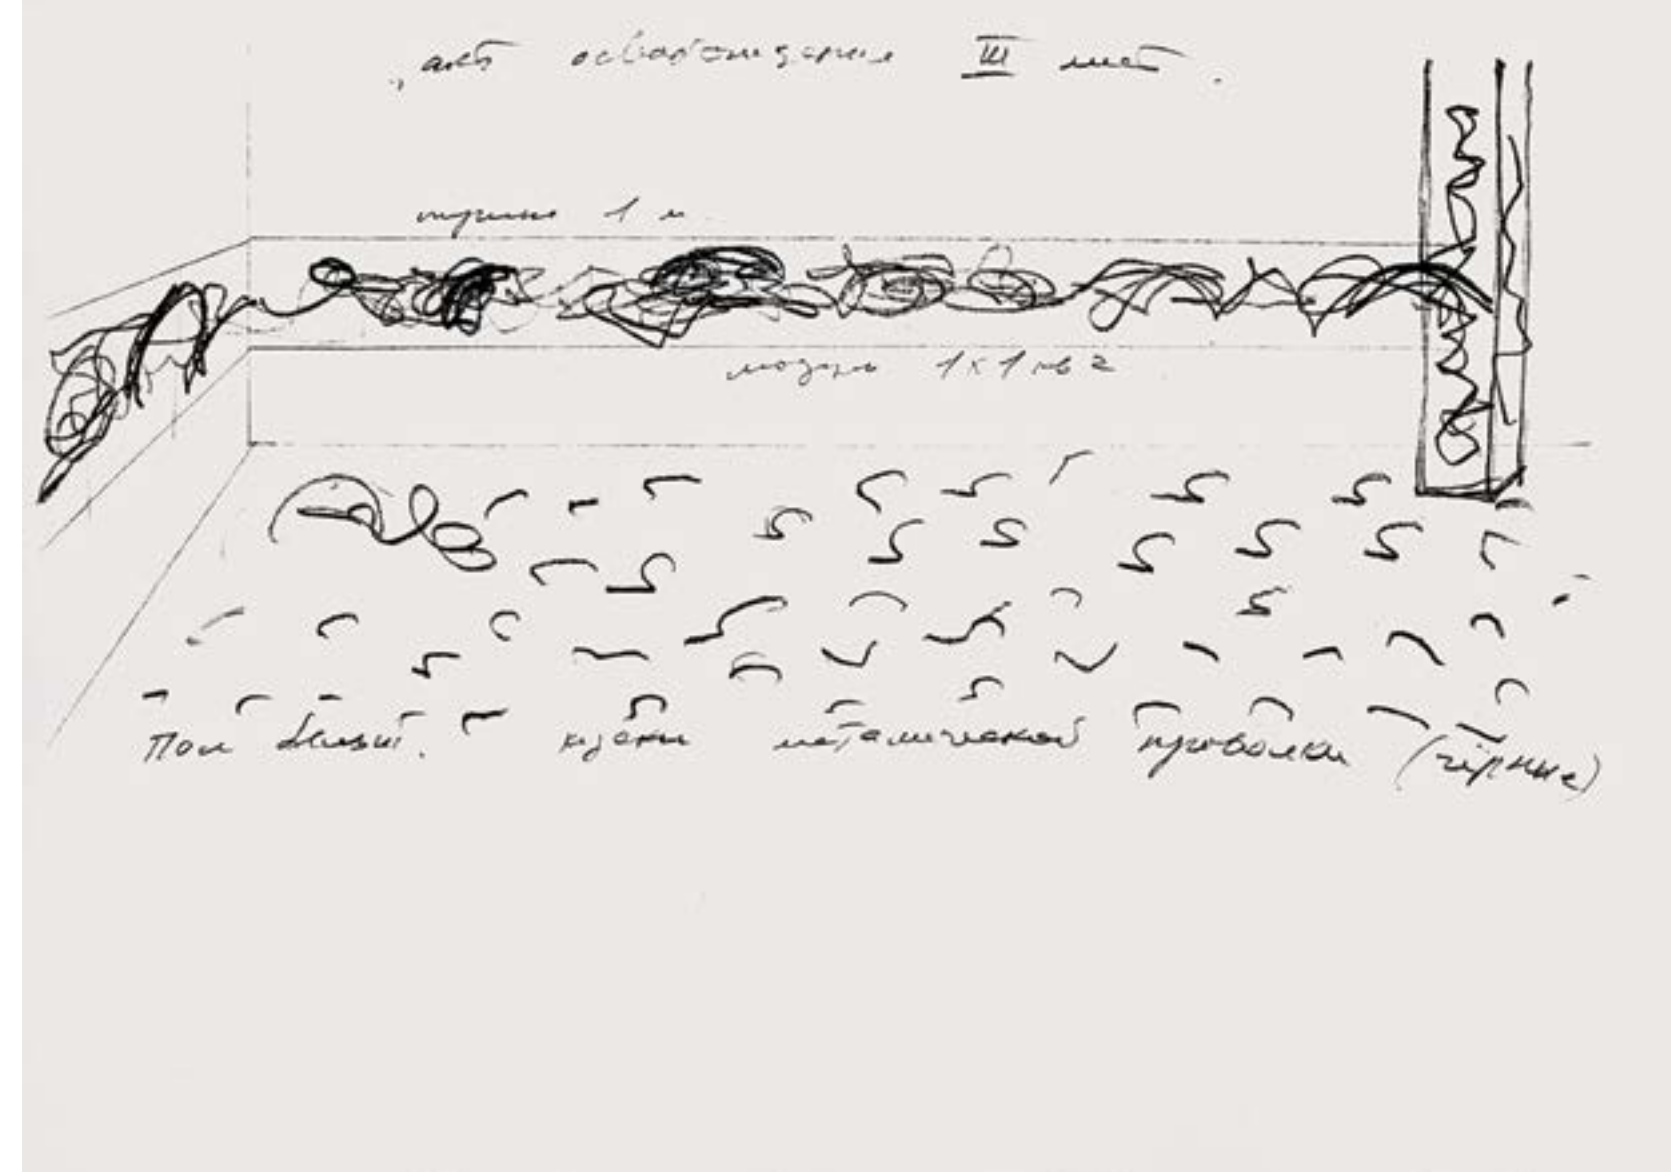 „акт освобождения III лист.
ширина 1 м
модуль 1x1 кв
Пол белый. куски металической проволки (чёрные)